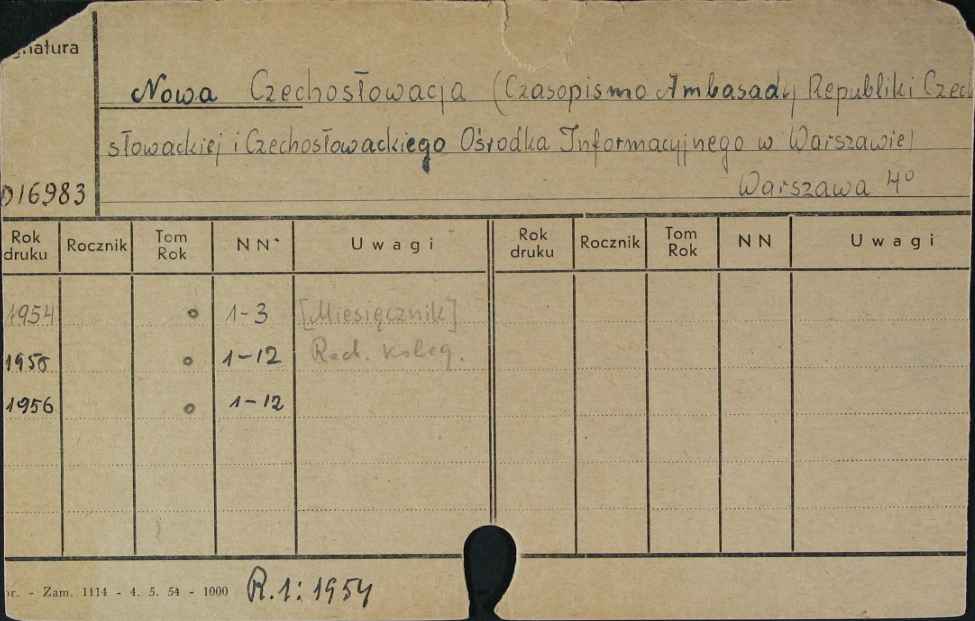 gnatura
Nowa Czechosłowacja (Czasopismo Ambasady Republiki Czech
słowackiej i Czechosłowackiego Ośrodka Informacyjnego w Warszawie)
Warszawa 4⁰
D16983
Rok druku Rocznik Tom Rok NN Uwagi Rok druku Rocznik Tom Rok NN Uwagi
1954 o 1-3 [Miesięcznik]
1955 o 1-12 Red. koleg.
1956 o 1-12
or. - Zam. 1114 - 4. 5. 54 - 1000 R.1: 1954